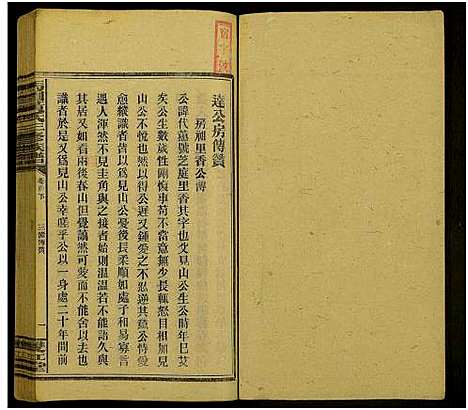 達公房傳贊
房祖里香公傳
公諱代蕙號芝庭里香其字也父見山公生公時年巳艾
矣公生數歲性剛愎事苟不當意無少長輒怒目相加見
山公不悅也以晚得公遲又鍾愛之不忍逆其意公恃愛
愈縱識者皆以爲見山公憂後長柔順如處子和易寡言
笑渾然不見圭角與之接者始則溫溫若不能語久與
其居又如坐春山但覺藹然可愛而不能舍以去也
識者於是又爲見山公幸嗟乎公以一身處二十年間前
三修族譜
卷首下
三編傳贊
一